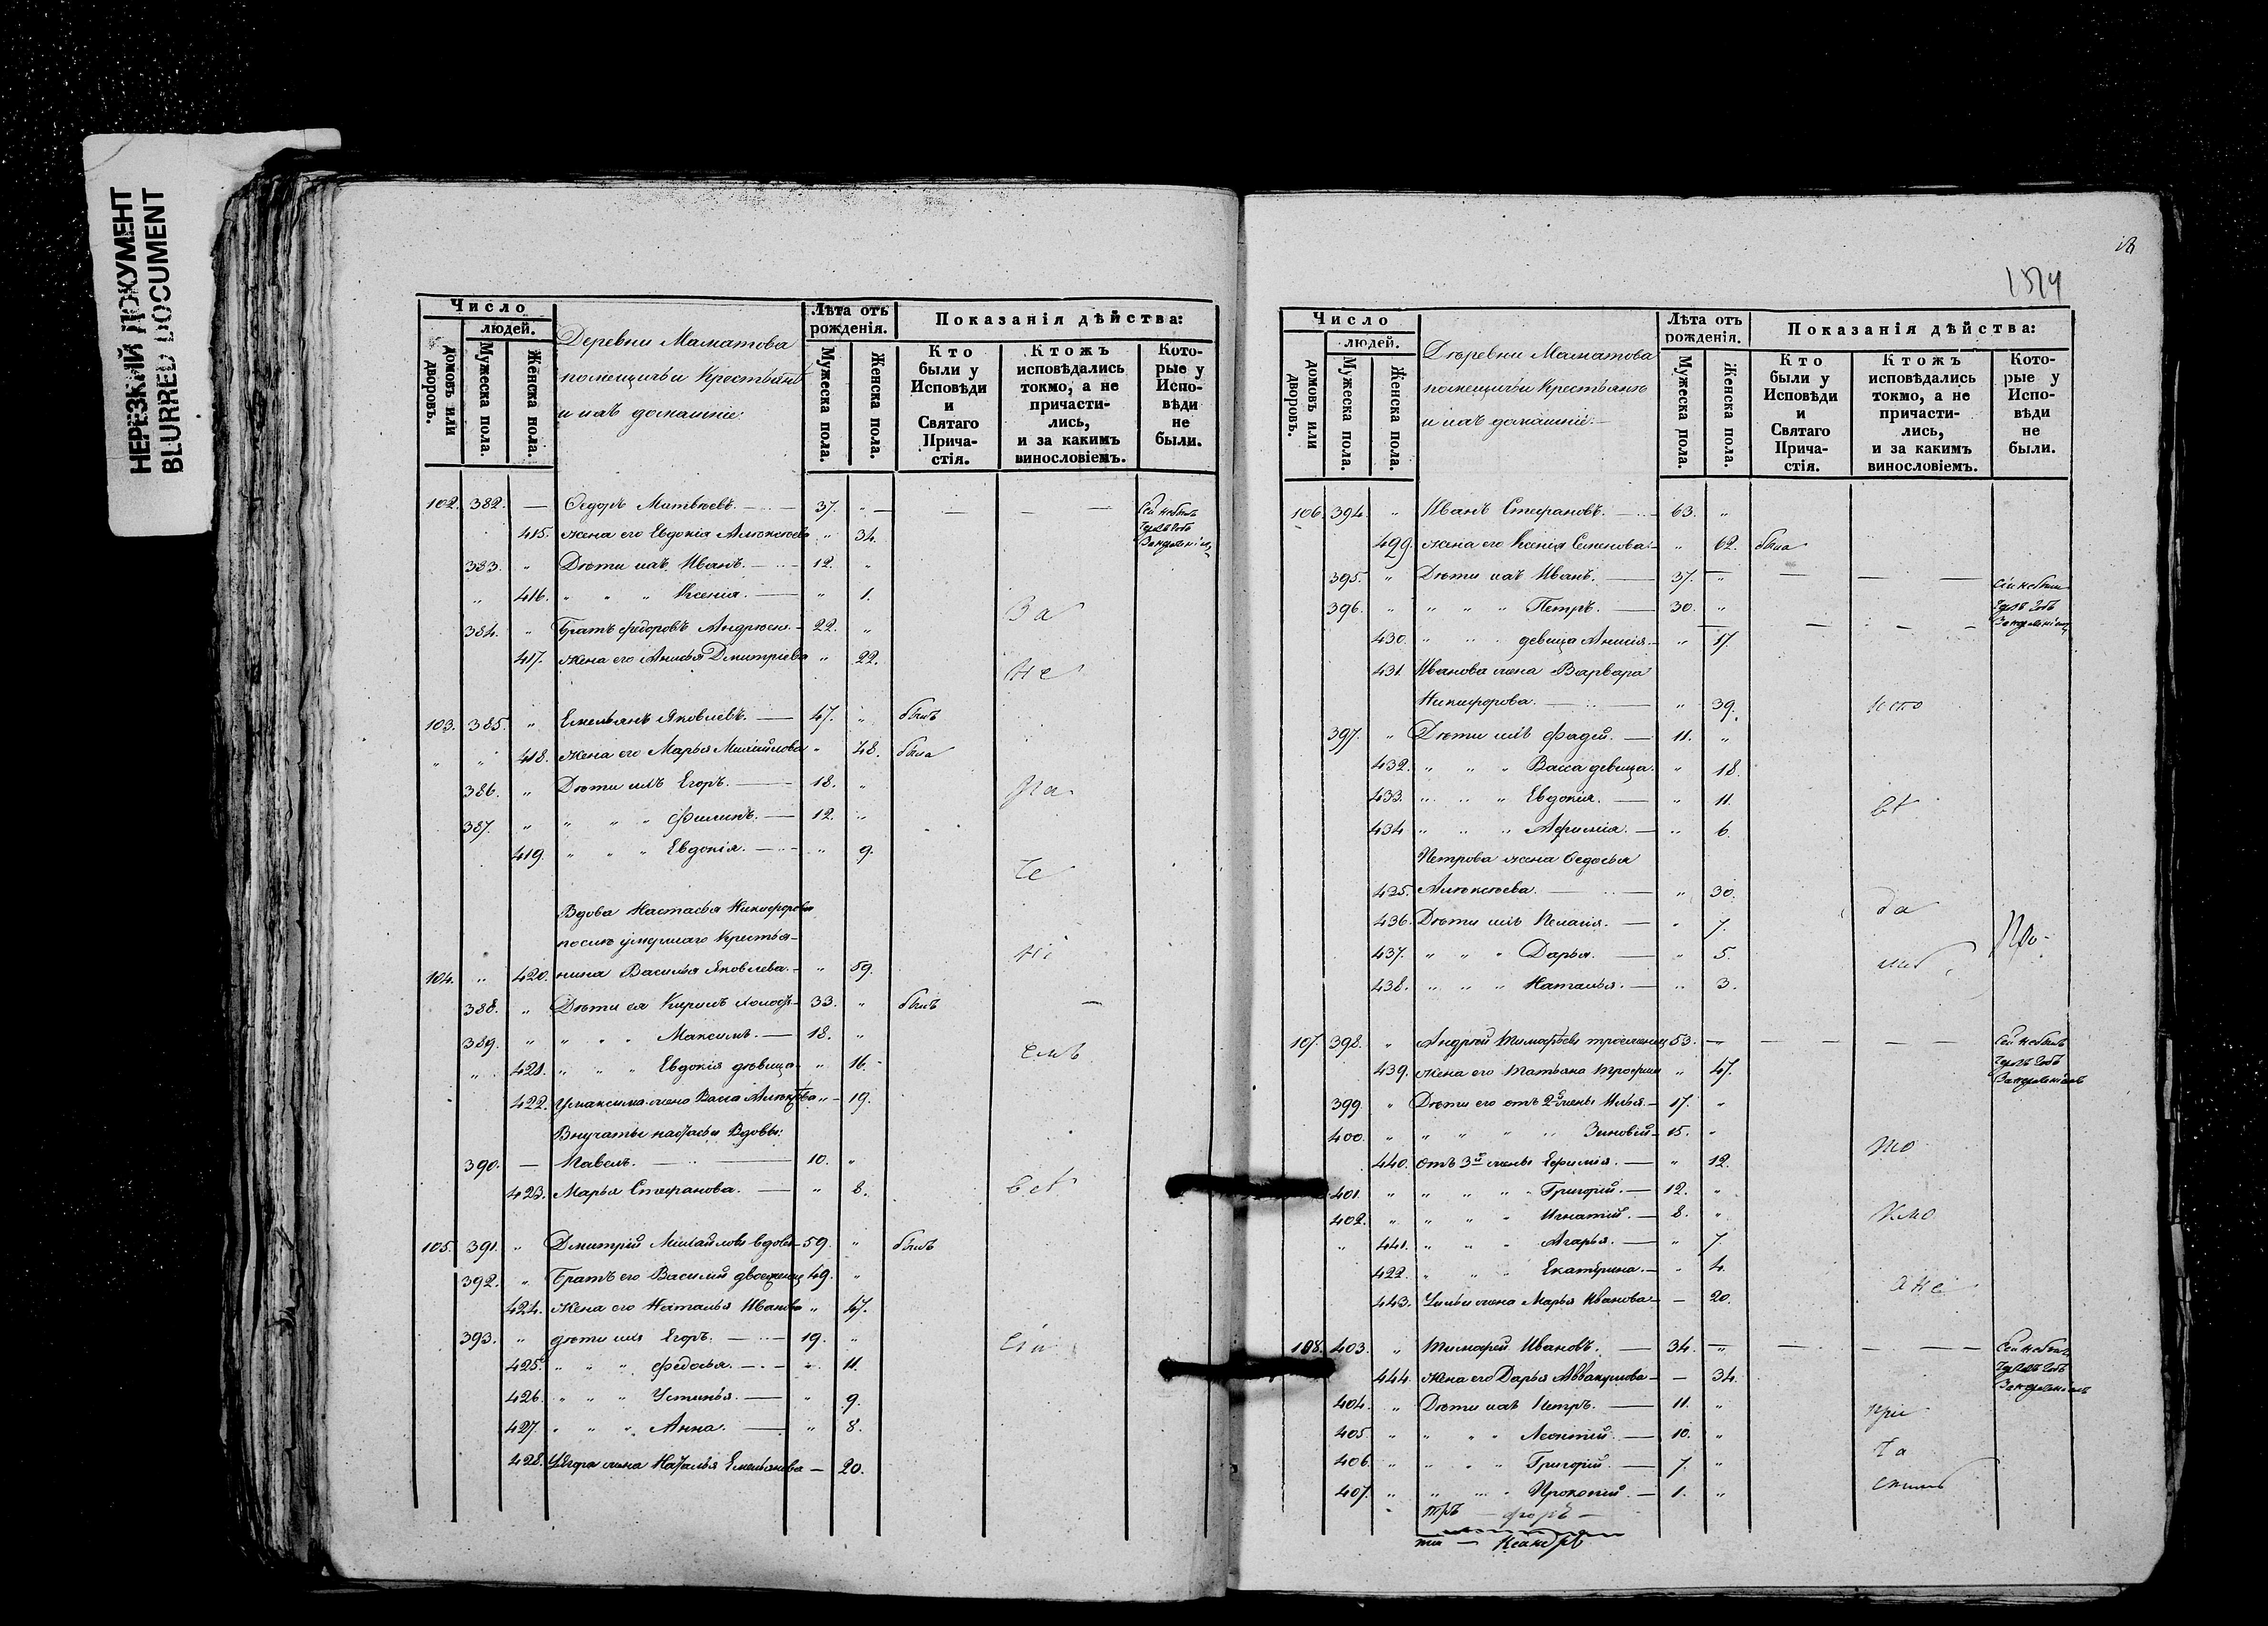 НЕРЕЗКИЙ ДОКУМЕНТ
BLURRED DOCUMENT
Число
людей.
домовъ или дворовъ.
Мужеска пола.
Женска пола.
Деревни Маматова
помещичьи Крестьянъ
и ихъ домашніе:
Лѣта отъ рожденія.
Мужеска пола.
Женска пола.
Показанія дѣйства:
Кто были у Исповѣди и Святаго Прича-стія.
Ктожъ исповѣдались токмо, а не причасти-лись, и за какимъ винословіемъ.
Кото-рые у Испо-вѣди не были.
102. 382. — Ѳедоръ Матвѣевъ. — 37. „ —
415. жена его Евдокія Алѣксѣева „ 34.
383. „ Дѣти ихъ Иванъ. — 12. „
„ 416. „ „ „ Ксенія. — „ 1.
За
384. „ Братъ федоровъ Андрюсъ. — 22. „
417. жена его Анисья Дмитріева „ 22.
не
103. 385. „ Емельянъ Яковлевъ. — 47. „ былъ
„ „ 418. жена его Марья Михайлова „ 48. была
386. „ Дѣти ихъ Егоръ. — 18. „
387. „ „ „ „ филипъ. — 12. „
419. „ „ „ Евдокія. — „ 9.
Вдова Настасья Никифорова
послѣ умершаго Крестья-
104. „ 420. нина Василья Яковлева. — „ 59.
388. „ Дѣти ея Кирилъ холостъ — 33. „ былъ
389. „ „ „ „ Максимъ. — 18. „
„ 421. „ „ „ Евдокія дѣвица — „ 16.
емъ
422. У максима жена Васса „ — 19.
Внучаты настасьи Вдовы:
390. — Павелъ. — 10. „
423. Марья Стефанова. — „ 8.
105. 391. „ Дмитрій Михайловъ вдовъ — 59. „ былъ
392. „ Братъ его Василій двоеженец 49. „
424. жена его Наталья Иванова „ 47.
393. „ дѣти ихъ Егоръ. — 19. „
425. „ „ „ федосья. — „ 11.
426. „ „ „ Устинья. — „ 9.
427. „ „ „ Анна. — „ 8.
428. У Егора жена Наталья Емельянова — 20.
1374
Число
людей.
домовъ или дворовъ.
Мужеска пола.
Женска пола.
Дѣревни Маматова
помещичьи Крестьянъ
и ихъ домашніе:
Лѣта отъ рожденія.
Мужеска пола.
Женска пола.
Показанія дѣйства:
Кто были у Исповѣди и Святаго Прича-стія.
Ктожъ исповѣдались токмо, а не причасти-лись, и за какимъ винословіемъ.
Кото-рые у Испо-вѣди не были.
106. 394. „ Иванъ Стефановъ. — 63. „
499. жена его Ксенія Семенова — „ 62. была
395. „ Дѣти ихъ Иванъ. — 37. „
396. „ „ „ „ Петръ. — 30. „
430. „ „ „ девица Анисія. — „ 17.
431. Иванова жена Варвара
Никифорова. — „ 39.
397. „ Дѣти ихъ фадей. — 11. „
432. „ „ „ Васса девица. „ 18.
433. „ „ „ Евдокія. — „ 11.
434 „ „ „ Афимія. — „ 6.
Петрова жена Ѳедосья
435. Алѣксѣева. — „ 30.
да
436. Дѣти ихъ Пелагія. — „ 7.
437. „ „ „ Дарья. — „ 5.
438. „ „ „ Наталья. — „ 3.
107. 398. „ Андрей Тимофѣевъ троеженец 53. —
439. жена его Татьяна Трофим „ 47.
399. „ Дѣти его отъ 2й жены Илья. — 17. „
400. „ „ „ „ „ Зиновій — 15. „
440. отъ 3й жены Ефимія. — „ 12.
401. „ „ „ „ „ Григорій. — 12. „
402. „ „ „ „ Игнатій. — 8. „
„ 441. „ „ „ Агарья. — „ 7.
422. „ „ „ Екатерина. — „ 4.
а не
443. У ильи жена Марья Иванова — — 20.
108. 403. „ Тимофей Ивановъ. — 34. —
444. жена его Дарья Аввакумова — — 34.
404. „ Дѣти ихъ Петръ. — 11. „
при
405 „ „ „ „ Леонтій. — 10. „
406. „ „ „ „ Григорій. — 7. „
407. „ „ „ „ Прокопій. — 1. „